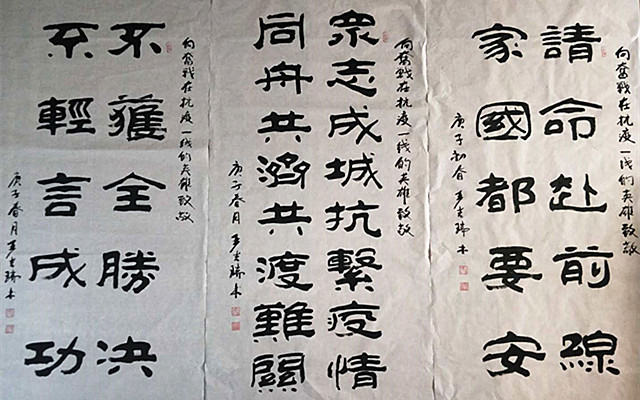 向奋战在抗疫一线的英雄致敬
請命赴前線
家國都要安
庚子初春
向奋战在抗疫一线的英雄致敬
眾志成城抗繫疫情
同舟共濟共渡難關
庚子春月
向奋战在抗疫一线的英雄致敬
不獲全勝决
不輕言成功
庚子春月